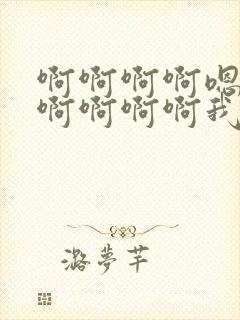 啊啊啊啊嗯
啊啊啊啊我
潞夢芊